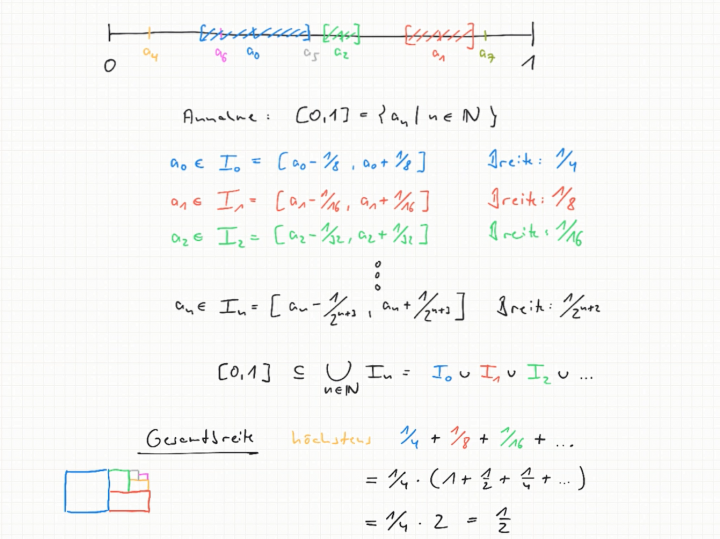 a₄ a₆ a₀ a₅ a₂ a₁ a₇
0 1
Annahme: [0,1] = {aₙ | n ∈ ℕ}
a₀ ∈ I₀ = [a₀ - 1/8, a₀ + 1/8] Breite: 1/4
a₁ ∈ I₁ = [a₁ - 1/16, a₁ + 1/16] Breite: 1/8
a₂ ∈ I₂ = [a₂ - 1/32, a₂ + 1/32] Breite: 1/16
aₙ ∈ Iₙ = [aₙ - 1/2ⁿ⁺³, aₙ + 1/2ⁿ⁺³] Breite: 1/2ⁿ⁺²
[0,1] ⊆ ⋃ Iₙ = I₀ ∪ I₁ ∪ I₂ ∪ ...
n∈ℕ
Gesamtbreite höchstens 1/4 + 1/8 + 1/16 + ...
= 1/4 · (1 + 1/2 + 1/4 + ...)
= 1/4 · 2 = 1/2